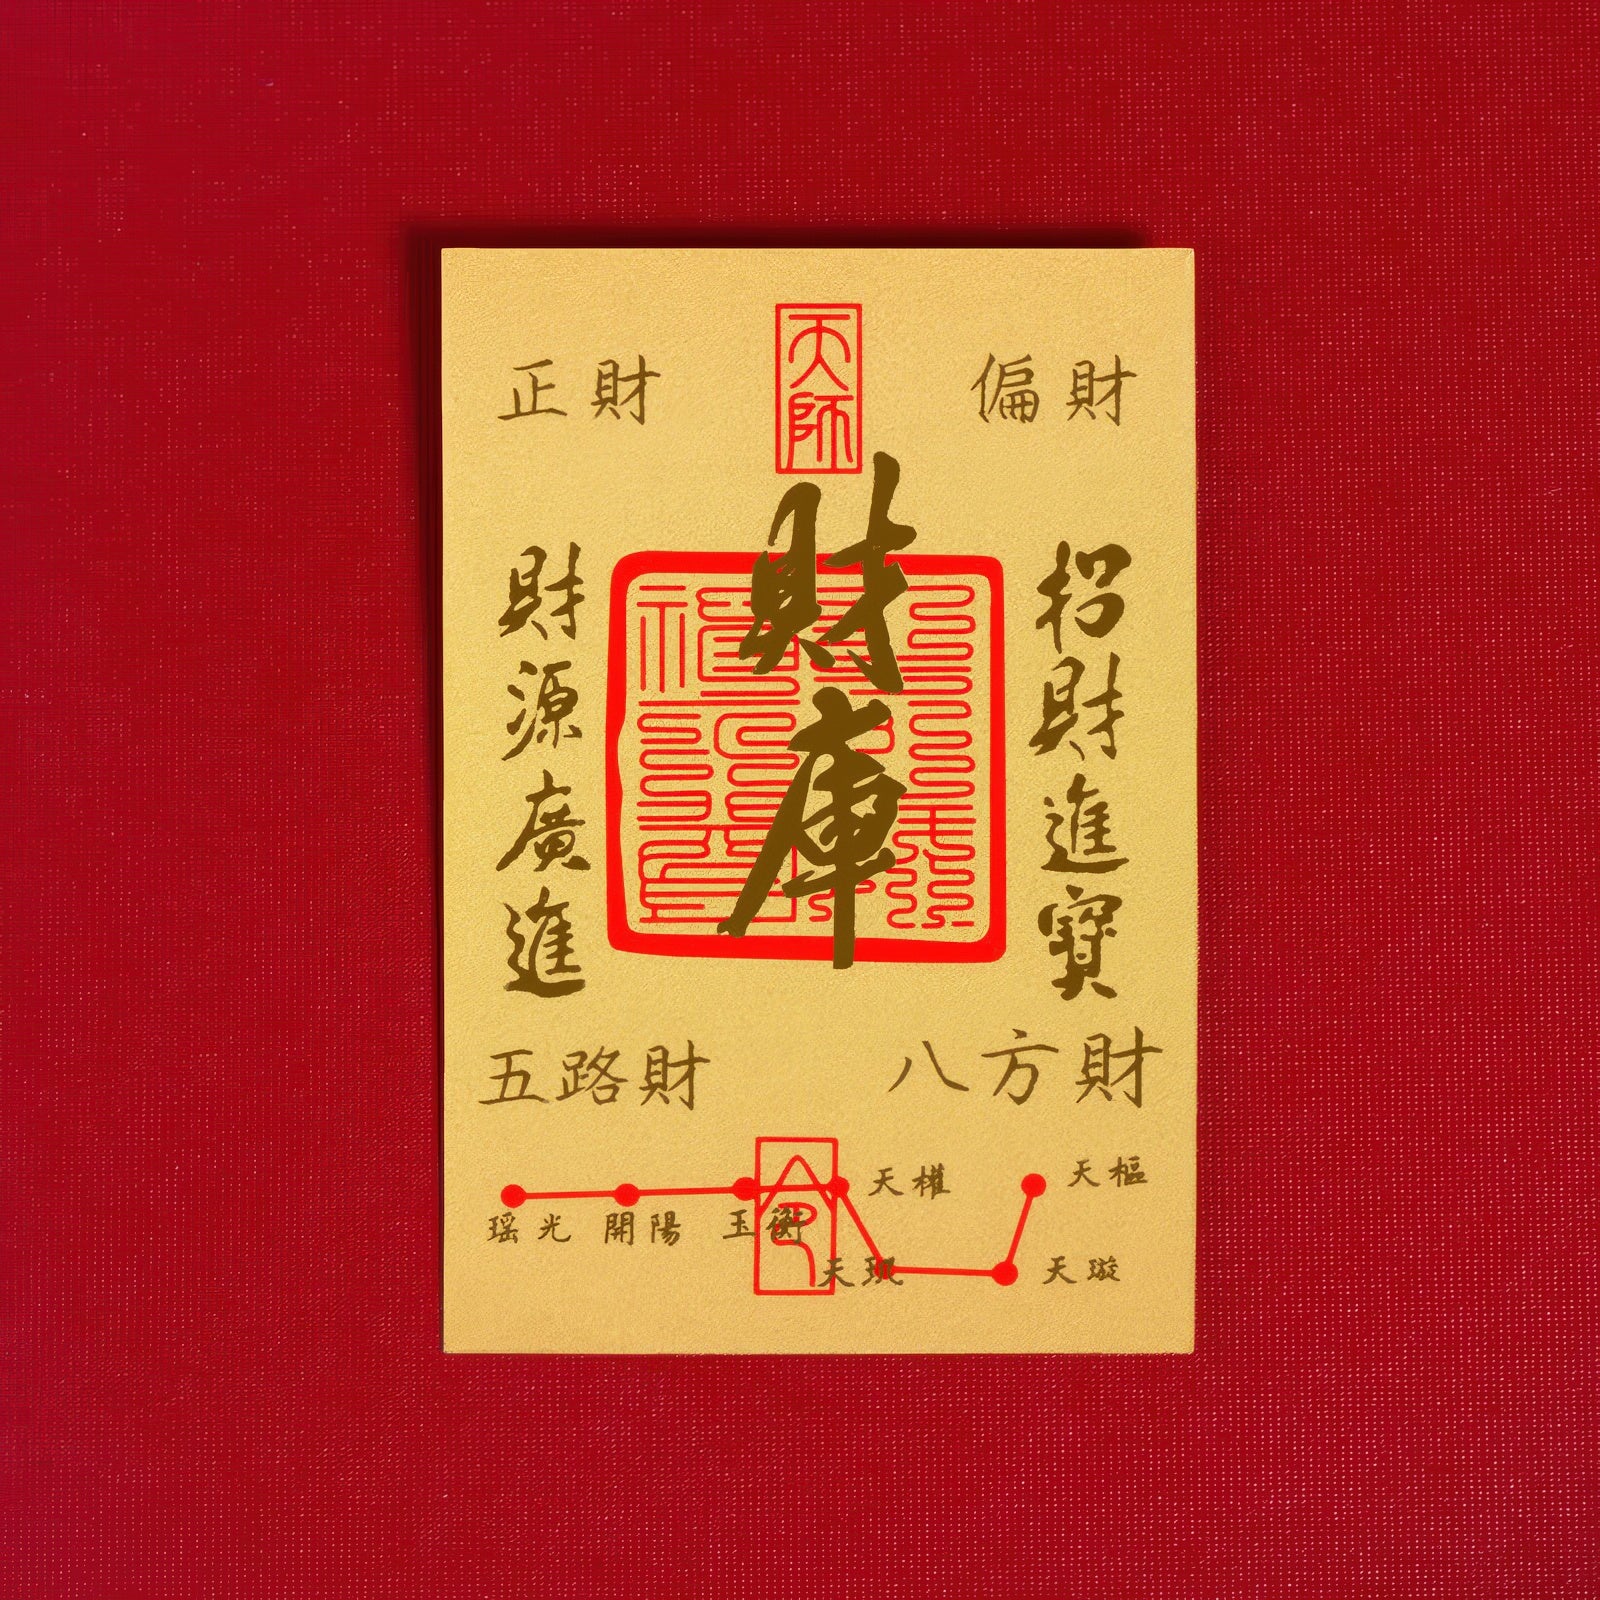 天師
正財
偏財
財庫
招財進寶
財源廣進
五路財
八方財
天權
天樞
瑶光
開陽
玉衡
天璣
天璇
令